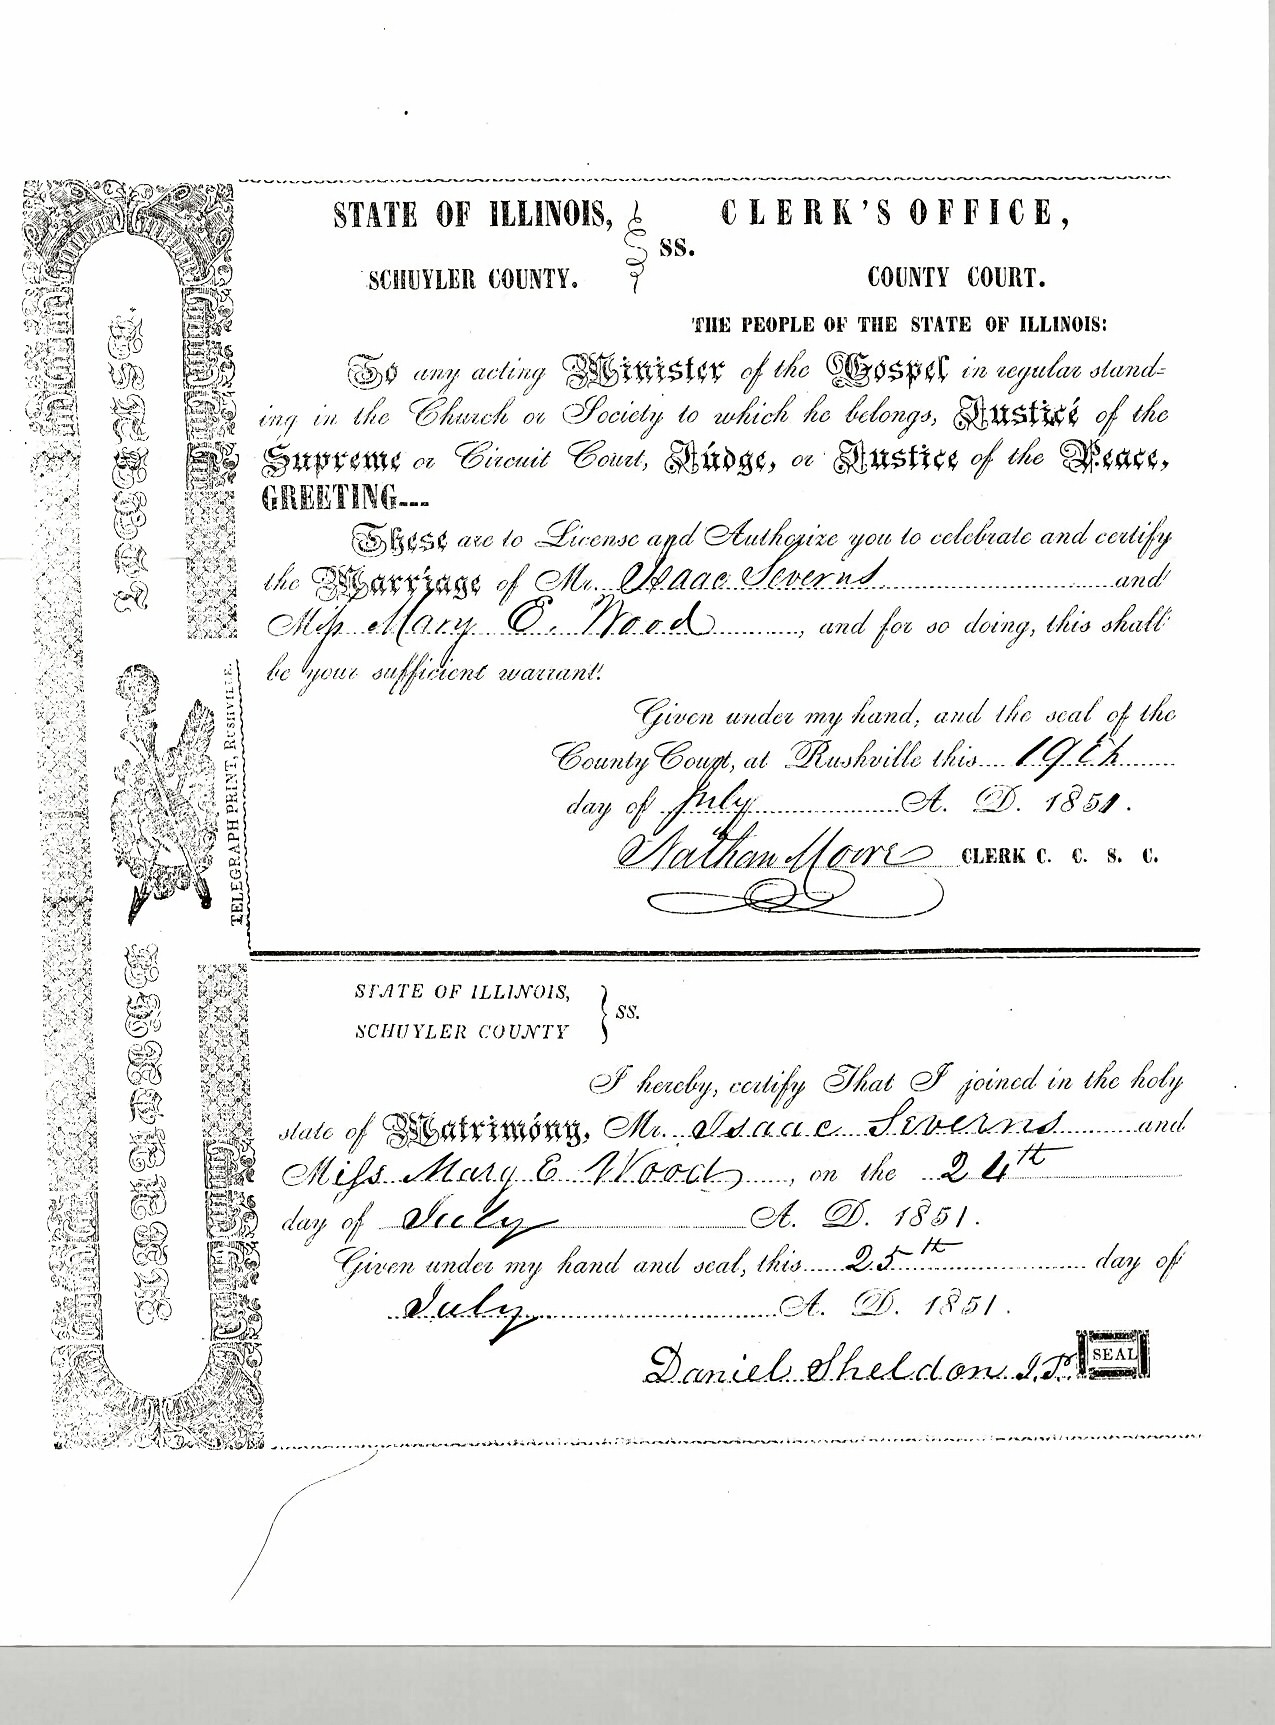 STATE OF ILLINOIS, SS. CLERK'S OFFICE,
SCHUYLER COUNTY. COUNTY COURT.
THE PEOPLE OF THE STATE OF ILLINOIS:
To any acting Minister of the Gospel in regular stand=
ing in the Church or Society to which he belongs, Justice of the
Supreme or Circuit Court, Judge, or Justice of the Peace,
GREETING---
These are to License and Authorize you to celebrate and certify
the Marriage of Mr. Isaac Severns and
Miss Mary E. Wood, and for so doing, this shall
be your sufficient warrant.
Given under my hand, and the seal of the
County Court, at Rushville this 19th
day of July A. D. 1851.
Nathan Moore CLERK C. C. S. C.
MARRIAGE LICENSE.
TELEGRAPH PRINT, RUSHVILLE.
STATE OF ILLINOIS, SS.
SCHUYLER COUNTY
I hereby, certify That I joined in the holy
state of Matrimony, Mr. Isaac Severns and
Miss Mary E Wood, on the 24th
day of July A. D. 1851.
Given under my hand and seal, this 25th day of
July A. D. 1851.
Daniel Sheldon J.P. SEAL